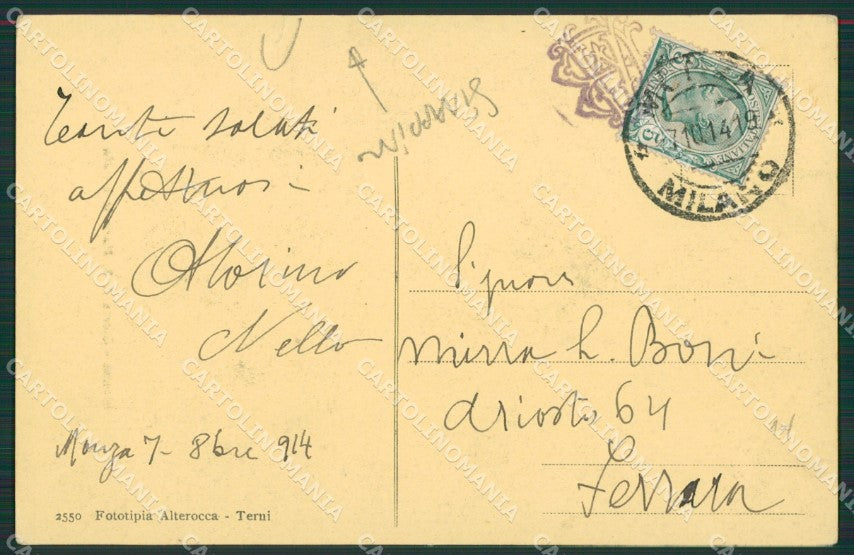 Tanti saluti
affettuosi -
Nello
Monza 7 - 8bre 914
2550 Fototipia Alterocca - Terni
MILANO
Signora
Mirra L. Boni
Ariosto 64
Ferrara
CARTOLINOMANIA